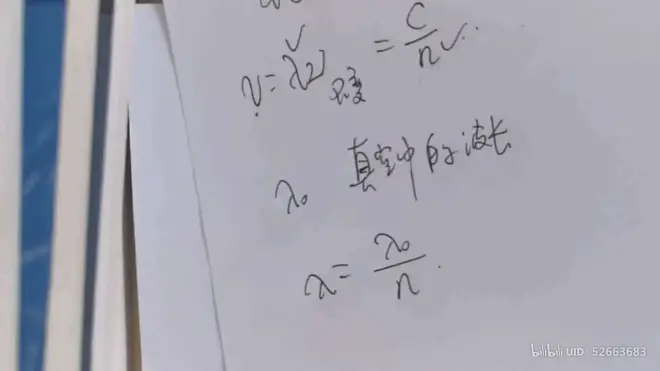 v = λν = c/n
不变
λ₀ 真空中的波长
λ = λ₀/n.
bilibili UID 52663683